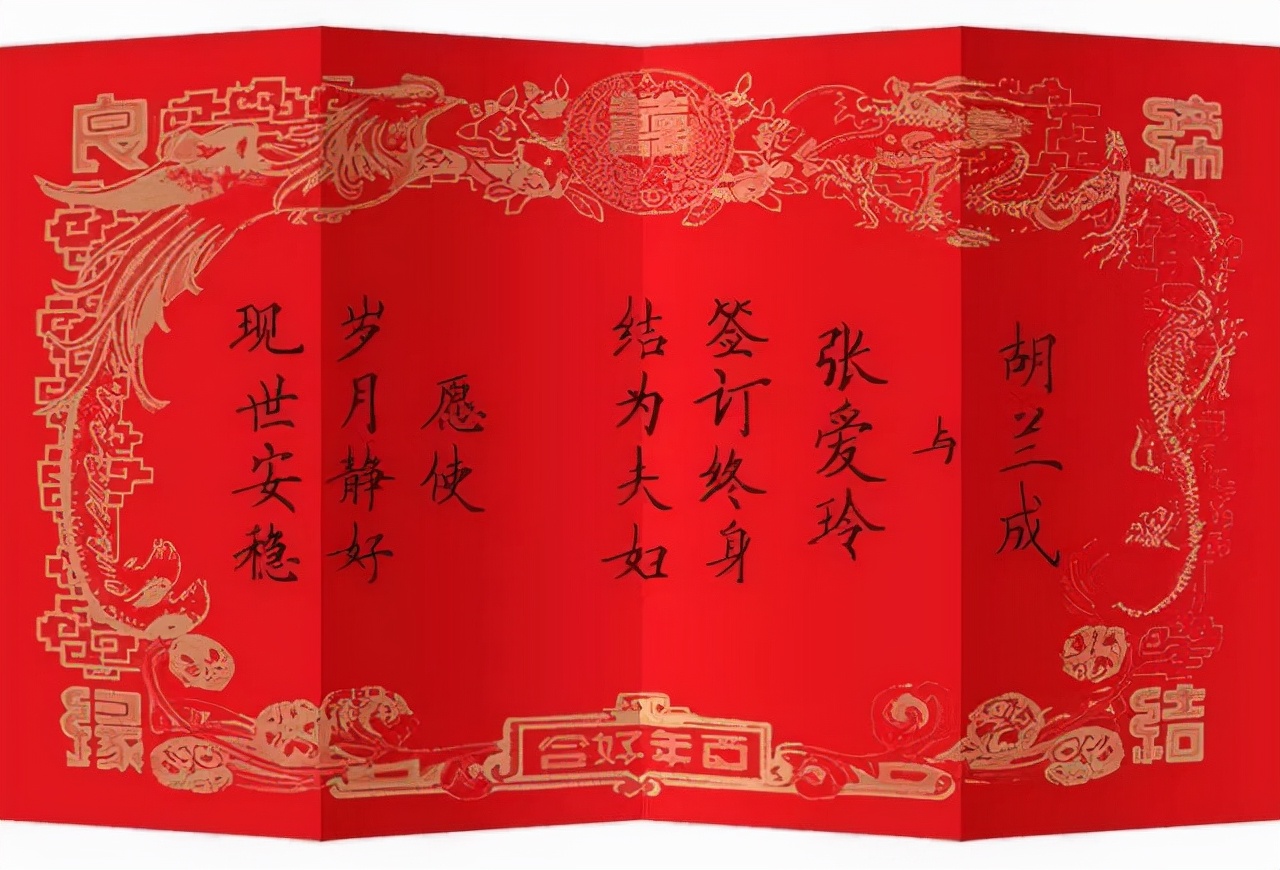 締結
胡兰成
与
张爱玲
签订终身
结为夫妇
愿使
岁月静好
现世安稳
良緣
百年好合